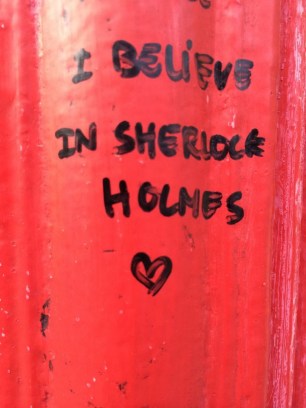 I BELiEVE
IN SHERLOCK
HOLMES